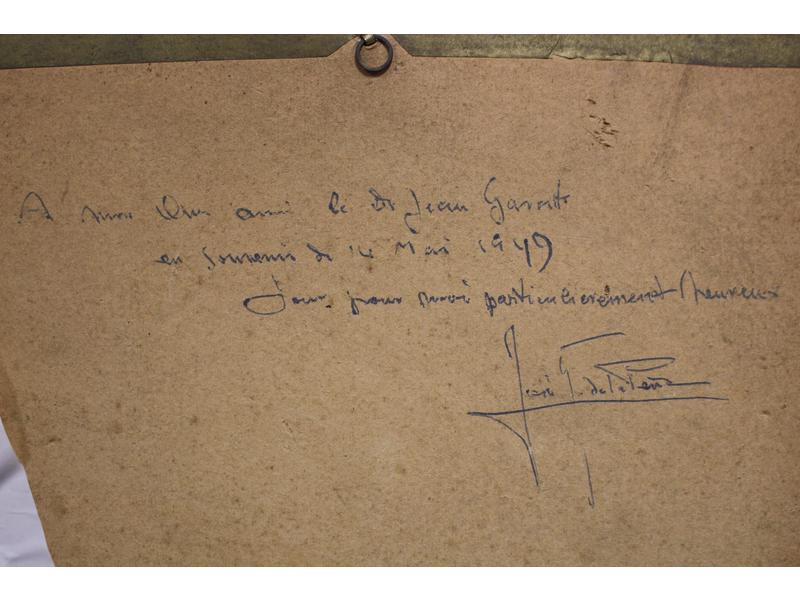 A mon cher ami le Dr Jean
en souvenir du 14 Mai 1949
Jour pour moi particulierement heureux
José de la Peña